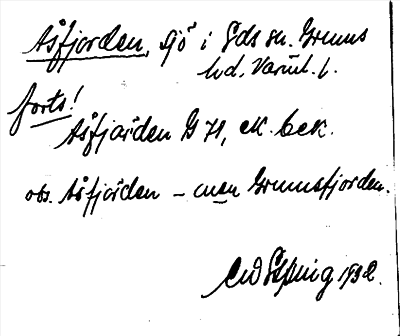 Åsfjorden, sjö i Eds sn. Grums
hd. Värml. l.
forts!
Åsfjärden G 71, ek. bek.
obs. Åsfjärden – men Grumsfjorden.
1932.